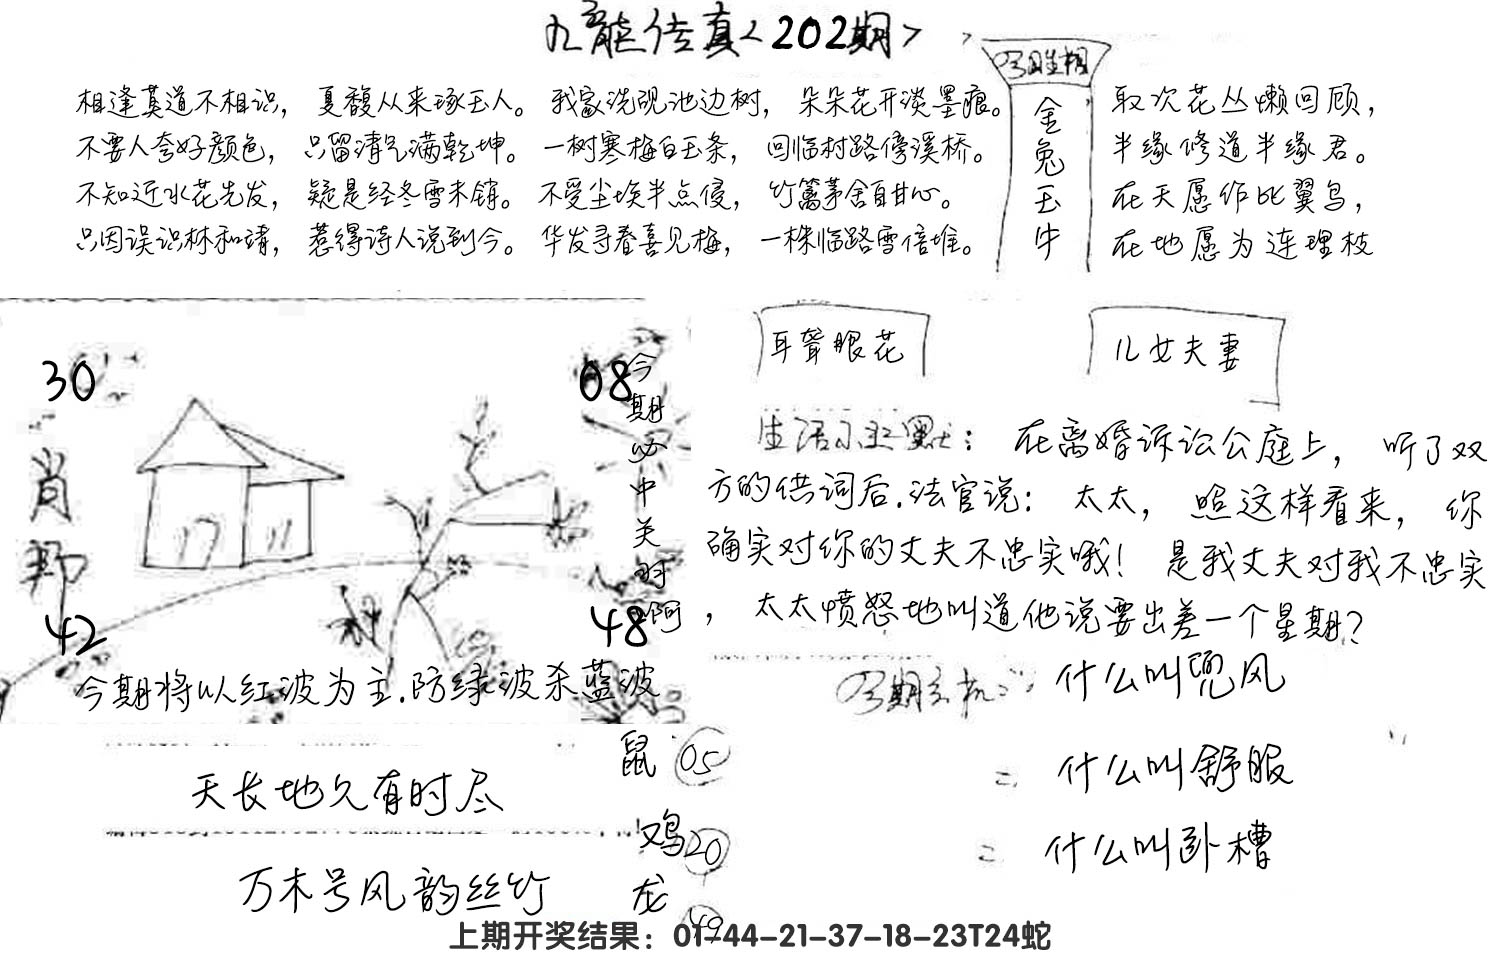 九龙传真<202期>
相逢莫道不相识，夏馥从来琢玉人。我家洗砚池边树，朵朵花开淡墨痕。
不要人夸好颜色，只留清气满乾坤。一树寒梅白玉条，回临村路傍溪桥。
不知近水花先发，疑是经冬雪未销。不受尘埃半点侵，竹篱茅舍自甘心。
只因误识林和靖，惹得诗人说到今。华发寻春喜见梅，一株临路雪倍堆。
金兔玉牛
取次花丛懒回顾，
半缘修道半缘君。
在天愿作比翼鸟，
在地愿为连理枝
耳聋眼花
儿女夫妻
30
08
肖
42
48
今期必中关对啊
今期将以红波为主.防绿波杀蓝波
生活小幽默：在离婚诉讼公庭上，听了双
方的供词后.法官说：太太，照这样看来，你
确实对你的丈夫不忠实哦！是我丈夫对我不忠实
，太太愤怒地叫道他说要出差一个星期？
什么叫兜风
二 什么叫舒服
二 什么叫卧槽
天长地久有时尽
万木号风韵丝竹
鼠 05
鸡 20
龙 49
上期开奖结果：01-44-21-37-18-23T24蛇